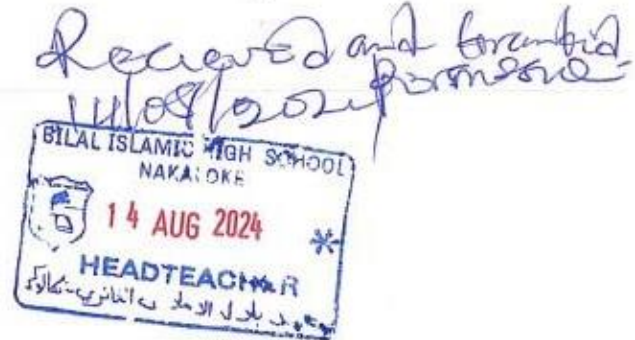 Recieved and Granted
14/08/2024 Permission
BILAL ISLAMIC HIGH SCHOOL
NAKALOKE
14 AUG 2024
HEADTEACHER